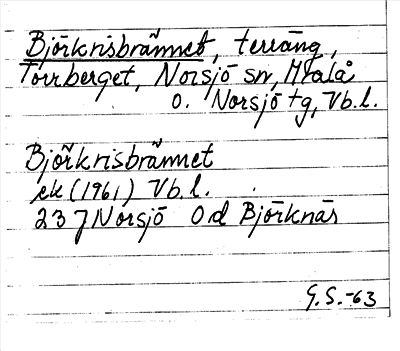 Björkrisbrännet, terräng,
Torrberget, Norsjö sn, Malå
o. Norsjö tg, Vb.l.
Björkrisbrännet
ek (1961) Vb.l.
23 J Norsjö 0 d Björknäs
G.S.-63